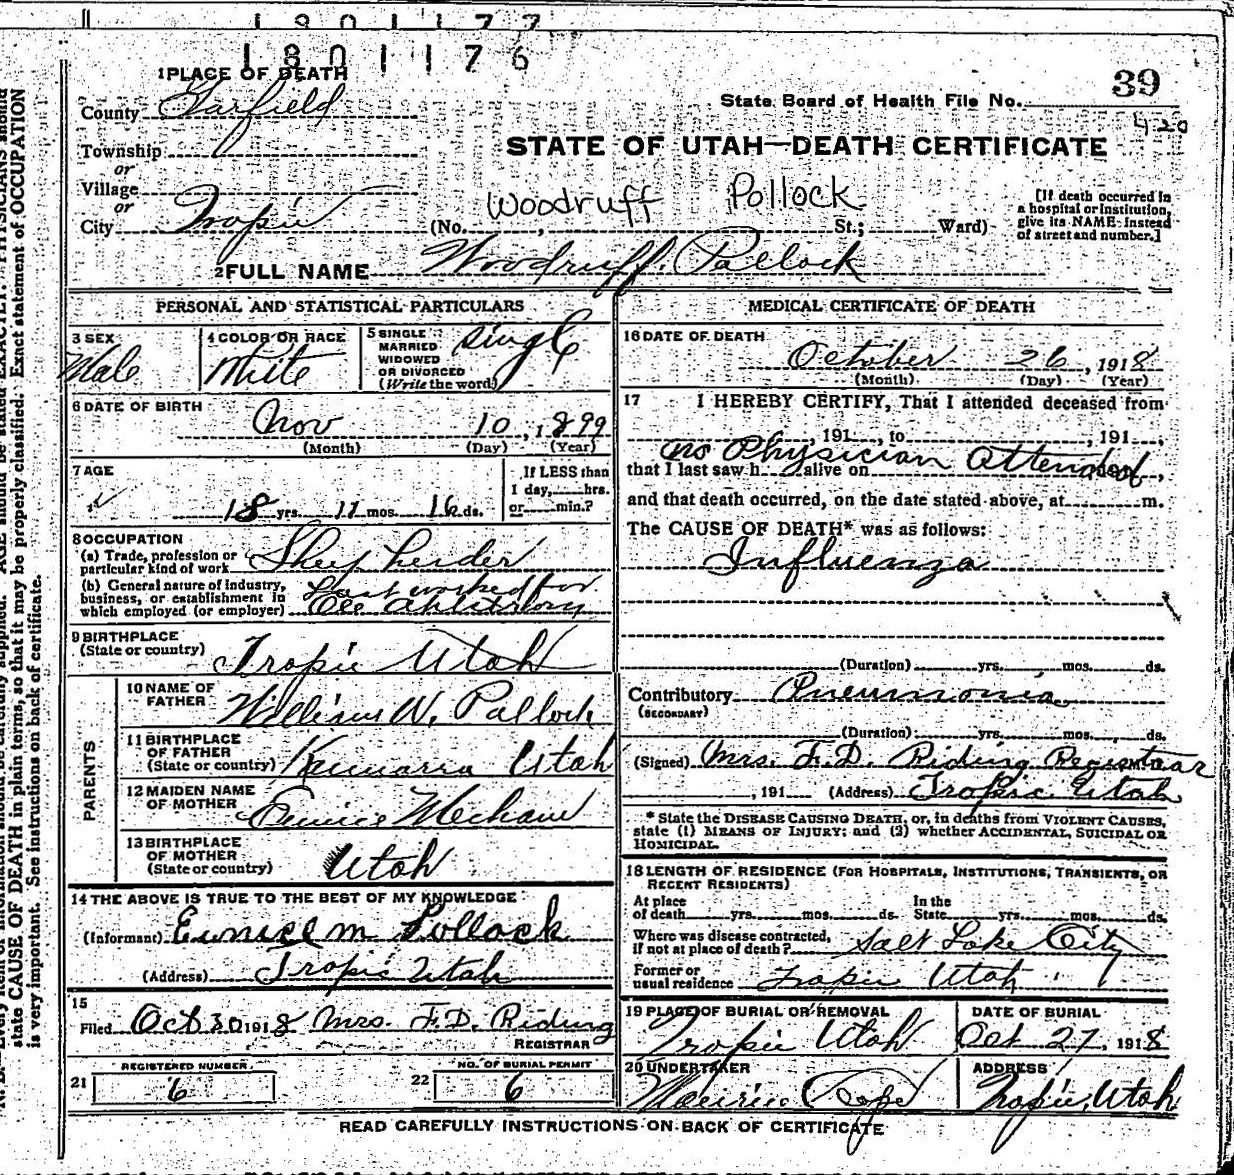 1801177
1801176
39
1 PLACE OF DEATH
County Garfield
State Board of Health File No.
420
Township
or
Village
or
City Tropic
STATE OF UTAH—DEATH CERTIFICATE
Woodruff Pollock
(No. , St.; Ward)
[If death occurred in
a hospital or institution,
give its NAME instead
of street and number.]
2 FULL NAME Woodruff Pollock
PERSONAL AND STATISTICAL PARTICULARS
3 SEX
Male
4 COLOR OR RACE
White
5 SINGLE
MARRIED
WIDOWED
OR DIVORCED
(Write the word)
Single
6 DATE OF BIRTH
Nov 10, 1899
(Month) (Day) (Year)
7 AGE
18 yrs. 11 mos. 16 ds.
If LESS than
1 day, hrs.
or min.?
8 OCCUPATION
(a) Trade, profession or
particular kind of work Sheep herder
(b) General nature of industry,
business, or establishment in
which employed (or employer)
Last worked for
9 BIRTHPLACE
(State or country) Tropic Utah
PARENTS
10 NAME OF
FATHER William W. Pollock
11 BIRTHPLACE
OF FATHER
(State or country) Kannarra Utah
12 MAIDEN NAME
OF MOTHER Eunice Mecham
13 BIRTHPLACE
OF MOTHER
(State or country) Utah
14 THE ABOVE IS TRUE TO THE BEST OF MY KNOWLEDGE
(Informant) Eunice M Pollock
(Address) Tropic Utah
15
Filed Oct 30 1918 Mrs. F.D. Riding
REGISTRAR
REGISTERED NUMBER.
21 6
NO. OF BURIAL PERMIT
22 6
MEDICAL CERTIFICATE OF DEATH
16 DATE OF DEATH
October 26, 1918
(Month) (Day) (Year)
17 I HEREBY CERTIFY, That I attended deceased from
, 191 , to , 191 ,
no Physician attended
that I last saw h alive on ,
and that death occurred, on the date stated above, at m.
The CAUSE OF DEATH* was as follows:
Influenza
(Duration) yrs. mos. ds.
Contributory Pneumonia
(SECONDARY)
(Duration) yrs. mos. ds.
(Signed) Mrs. F.D. Riding Registaar
, 191 (Address) Tropic Utah
* State the DISEASE CAUSING DEATH, or, in deaths from VIOLENT CAUSES,
state (1) MEANS OF INJURY; and (2) whether ACCIDENTAL, SUICIDAL OR
HOMICIDAL.
18 LENGTH OF RESIDENCE (FOR HOSPITALS, INSTITUTIONS, TRANSIENTS, OR
RECENT RESIDENTS)
At place
of death yrs. mos. ds.
In the
State yrs. mos. ds.
Where was disease contracted,
if not at place of death? Salt Lake City
Former or
usual residence Tropic Utah
19 PLACE OF BURIAL OR REMOVAL
Tropic Utah
DATE OF BURIAL
Oct 27, 1918
20 UNDERTAKER
Maurice Cope
ADDRESS
Tropic, Utah
READ CAREFULLY INSTRUCTIONS ON BACK OF CERTIFICATE
state CAUSE OF DEATH in plain terms, so that it may be properly classified. Exact statement of OCCUPATION
is very important. See instructions on back of certificate.